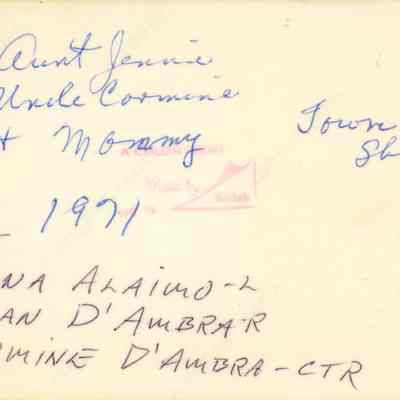 Aunt Jennie
Uncle Carmine
+ Mommy
Town
Sh
1971
NA ALAIMO-L
AN D'AMBRA-R
MINE D'AMBRA-CTR
Kodak